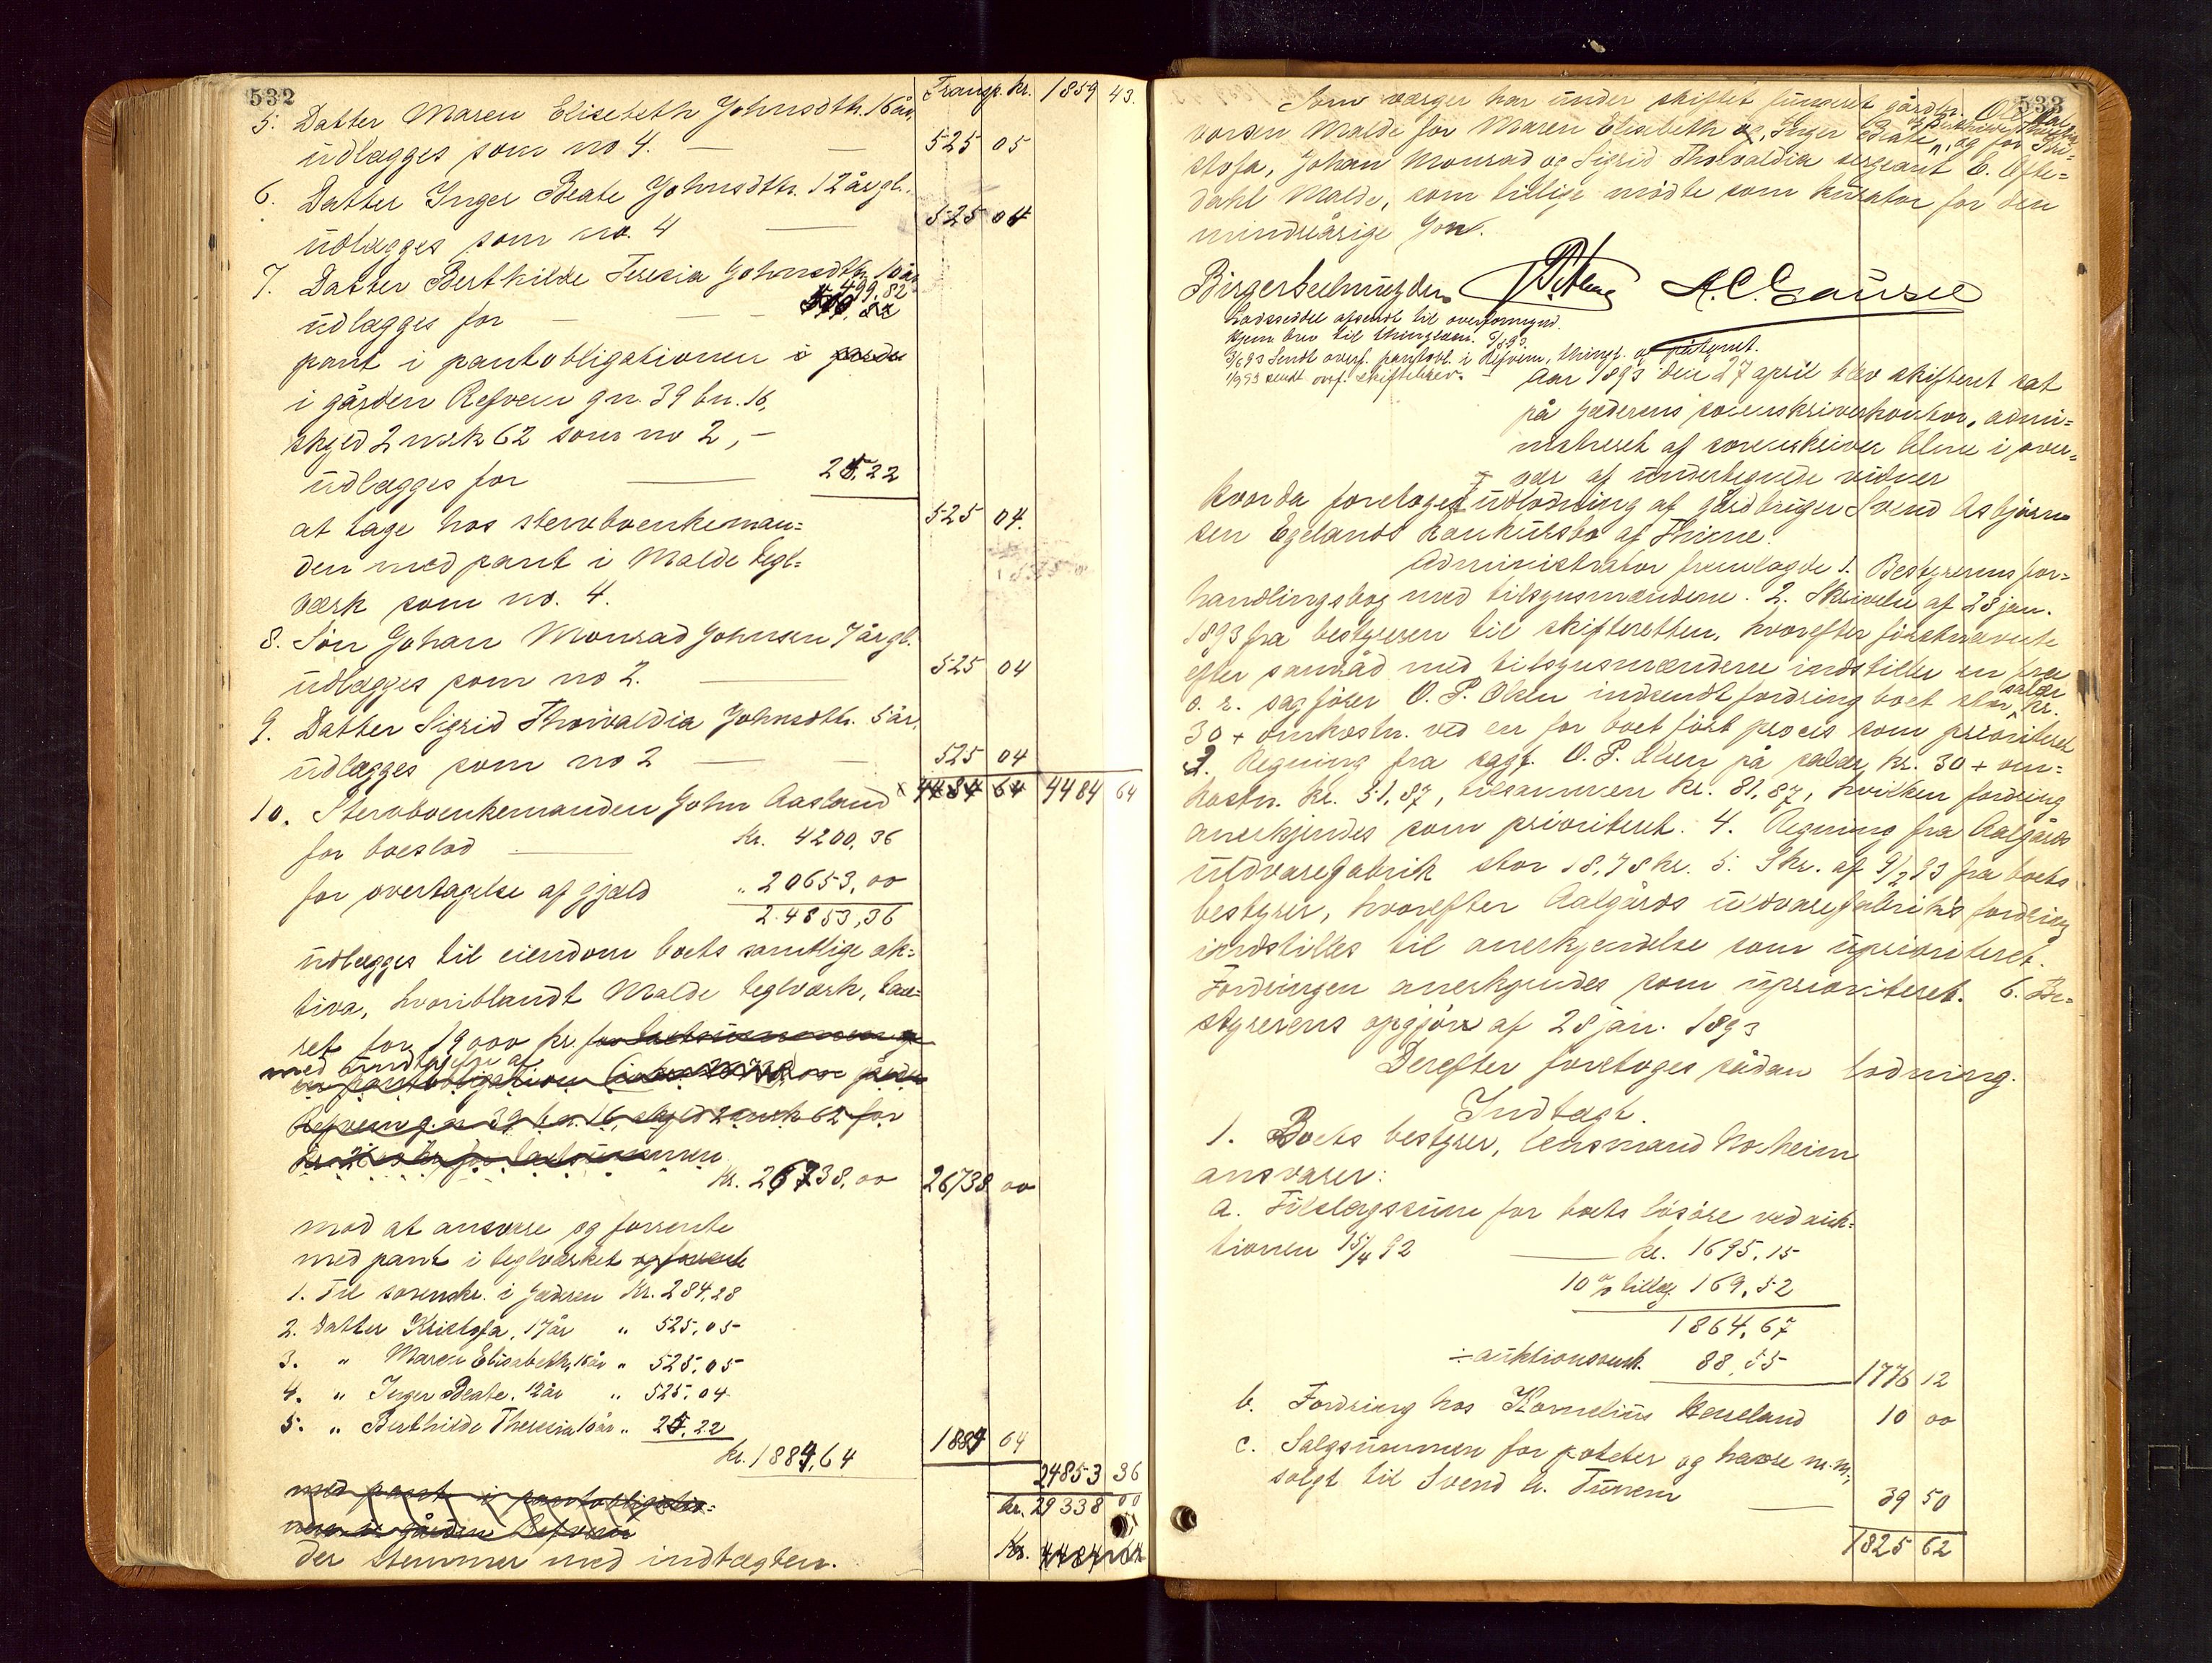 532
Transp. kr. 1859 43.
5. Datter Maren Elisebeth Johnsdtr. 16 år
udlægges som no 4. — — 525 05
6. Datter Inger Beate Johnsdtr. 12 år gl.
udlægges som no. 4 — 525 04
7. Datter Berthilde Teresia Johnsdtr. 10 år
udlægges for — — — 499,82
pant i pantobligationen i gården
i gården Refvem gn. 39 bn. 16,
skyld 2 mrk 62 som no 2, –
udlægges for — 25,22
525 04.
at tage hos stervboenkeman=
den med pant i Malde tegl=
værk som no. 4.
8. Søn Johan Monrad Johnsen 7 år gl.
udlægges som no 2. — 525 04
9. Datter Sigrid Thorvaldia Johnsdtr. 5 år,
udlægges som no 2 — — 525 04
10. Stervboenkemanden John Aasland × 4484 64 4484 64
for boeslod — Kr. 4200,36
for overtagelse af gjæld " 20653,00
24853,36
udlægges til eiendom boets samtlige ak=
tiva, hvoriblandt Malde teglværk, tax=
ret for 19000 kr for
med undtagelse af
en pantobligation
Refvem gn 39 bn. 16, skyld 2 mrk 62 for
Kr. 26738,00 26738 00
mod at ansvare og forrente
med pant i teglværket og forrente
1. Til sorenskr. i Jæderen Kr. 284,28
2. Datter Kristofa, 17 år " 525,05
3. " Maren Elisabeth, 16 år " 525,05
4. " Inger Beate, 12 år " 525,04
5. " Berthilde Theresia 10 år " 25,22
kr. 1884,64 1884 64
24853 36
med pant i pantobligatio=
nen i gården Refvem
kr. 29338 00
der stemmer med indtægten. Kr. 4484 64
533
Som værger har under skiftet fungeret gårdbr.
vorsen Malde for Maren Elisabeth og Inger Beate og Berthilde Theresia, og for Kri=
stofa, Johan Monrad og Sigrid Thorvaldia sergeant E. Ofte=
dahl Malde, som tillige mødte som kurator for den
mindreårige Jon.
A. C. Gausel
Lodseddel afsendt til overformynd.
Hjem brev til thinglæsn.
Sendt overf. pantobl. i Refvem, thingl. og påtegnet.
sendt overf. skiftebrev. –
Aar 1893 den 27 april blev skifteret sat
på Jæderens sorenskriverkontor, admi=
nistreret af sorenskriver i over=
vær af undertegnede vidner
hvorda foretoges udlodning af gårdbruger Svend Asbjørn
sen Egelands konkursbo af Thime.
Administrator fremlagde 1. Bestyrerens for=
handlingsbog med tilsynsmændene. 2. Skrivelse af 28 jan.
1893 fra bestyreren til skifteretten, hvorefter førstnævnte
efter samråd med tilsynsmændene indstiller en fra
o. r. sagfører O. P. Olsen indsendt fordring boet stor, salær kr.
30 + omkostn. ved en for boet ført proces som prioriteret
3. Regning fra sagf. O. P. Olsen på salær kr. 30 + om=
kostn. kr. 51,87, tilsammen kr. 81,87, hvilken fordring
anerkjendes som prioriteret. 4. Regning fra Aalgårds
uldvarefabrik stor 18,78 kr. 5. Skr. af 9/2 93 fra boets
bestyrer, hvorefter Aalgårds uldvarefabriks fordring
indstilles til anerkjendelse som uprioriteret.
Fordringen anerkjendes som uprioriteret. 6. Be=
styrerens opgjør af 28 jan. 1893
Derefter foretoges sådan lodning.
Indtægt.
1. Boets bestyrer, lensmand Norheim
ansvarer:
a. Tilslagssum for boets løsøre ved auk=
tionen 15/4 92 — kr. 1695,15
10 % tillæg 169,52
1864,67
÷ auktionsomk. 88,55 1776 12
b. Fordring hos Kornelius Herreland 10 00
c. Salgsummen for poteter og havre m.m.,
solgt til Svend A. Tunem — 39 50
1825 62